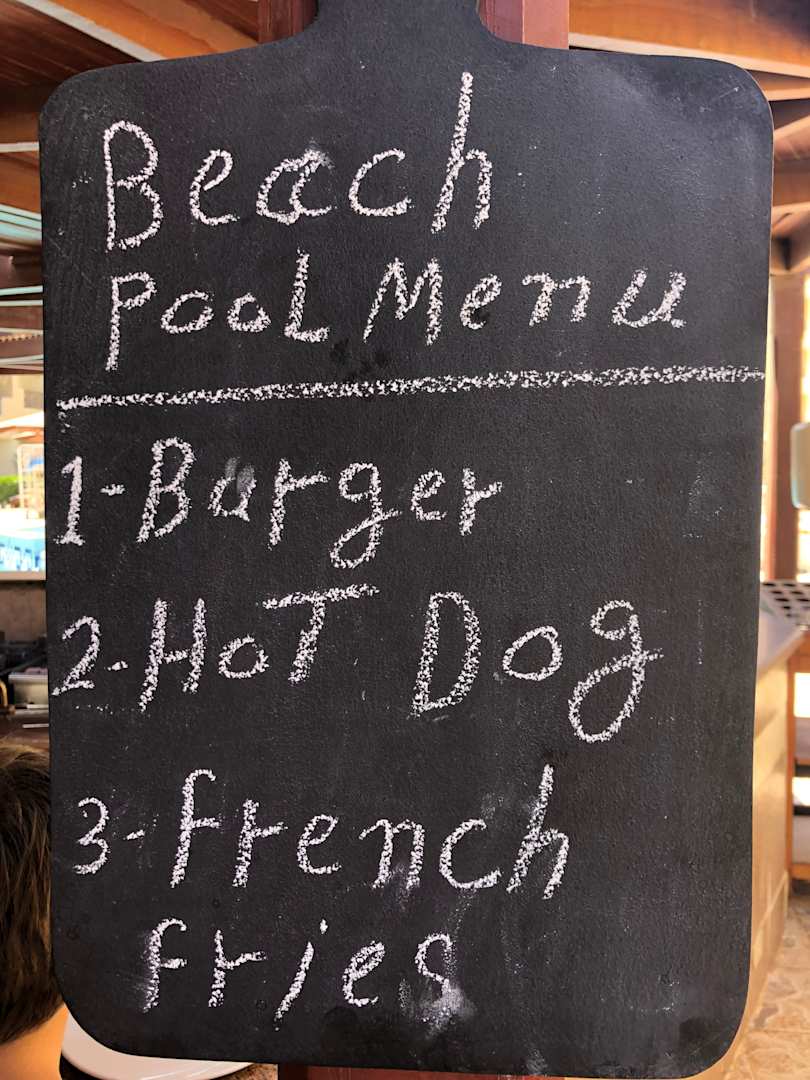 Beach
Pool Menu
1-Burger
2-HoT Dog
3-french
fries